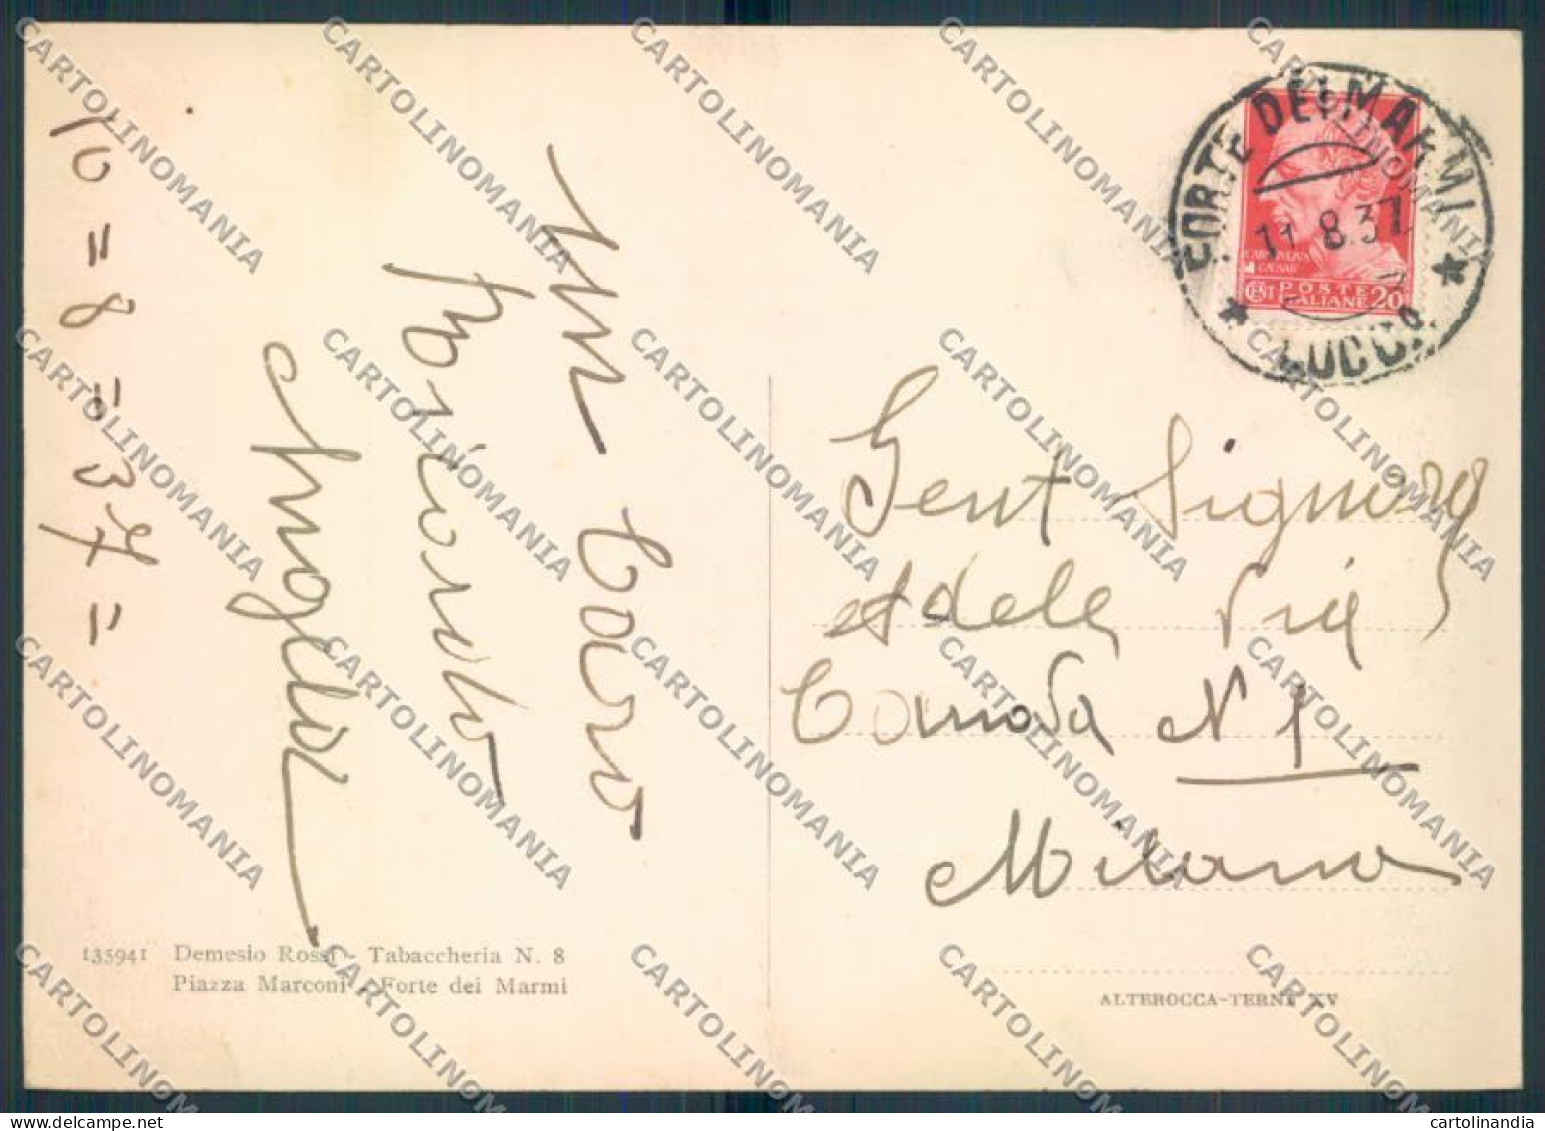 10 = 8 = 37 =
Un caro
ricordo
Angela
135941 Demesio Rossi - Tabaccheria N. 8
Piazza Marconi - Forte dei Marmi
FORTE DEI MARMI
11.8.37
LUCCA
POSTE
ITALIANE
CENT 20
Gent Signora
Adele Via
Canova N 1
Milano
ALTEROCCA-TERNI XV
CARTOLINOMANIA
cartolinandia